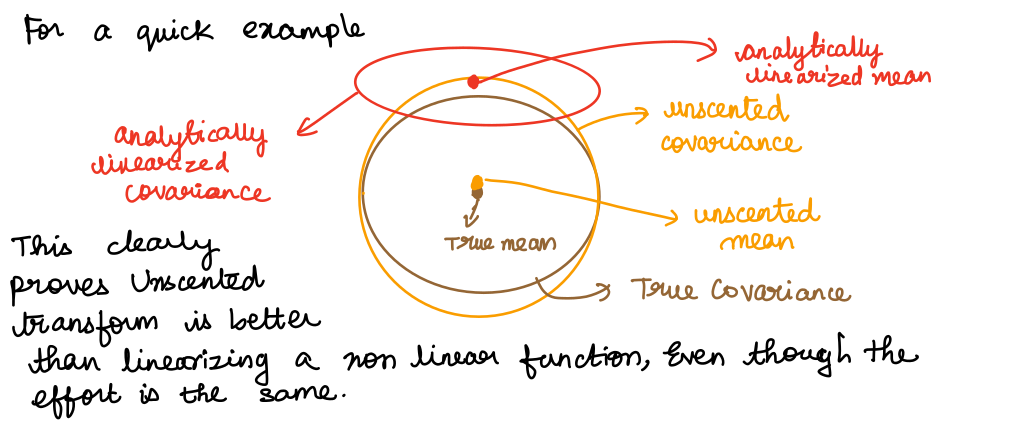 For a quick example
analytically
linearized mean
unscented
covariance
analytically
linearized
covariance
unscented
mean
True mean
True Covariance
This clearly
proves Unscented
transform is better
than linearizing a non linear function, Even though the
effort is the same.